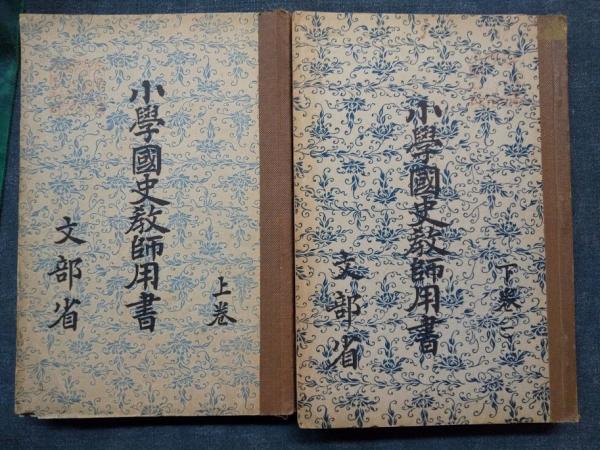 小學國史教師用書
上卷
文部省
小學國史教師用書
下卷一
文部省